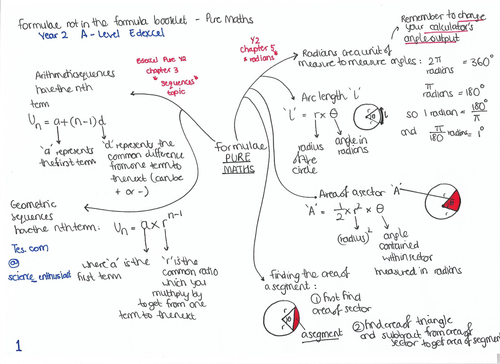 Formulae not in the formula booklet - Pure Maths
Year 2 A-Level Edexcel
Remember to change
your calculator's
angle output
Edexcel Pure Y2
chapter 3
"sequences"
topic
Y2
chapter 5
"radians"
Arithmetic sequences
have the nth
term
Un = a + (n-1)d
'a' represents
the first term
'd' represents the
common difference
from one term to
the next (can be
+ or -)
Geometric
sequences
have the nth term.
Un = a x r^n-1
where 'a' is the
first term
'r' is the
common ratio
which you
multiply by
to get from one
term to the next
Tes.com
@
science_enthusiast
1
formulae
PURE
MATHS
Radians are a unit of
measure to measure angles :
2π radians = 360°
π radians = 180°
so 1 radian = 180°/π
and π/180 radians = 1°
Arc length 'L'
'L' = r x θ
radius
of the
circle
angle in
radians
r
θ
L
Area of a sector 'A'
'A' = 1/2 x r² x θ
(radius)²
angle
contained
within sector
measured in radians
r
θ
r
Finding the area of
a segment :
① first find
area of sector
② find area of triangle
and subtract from area of
sector to get area of segment
r
θ
r
a segment